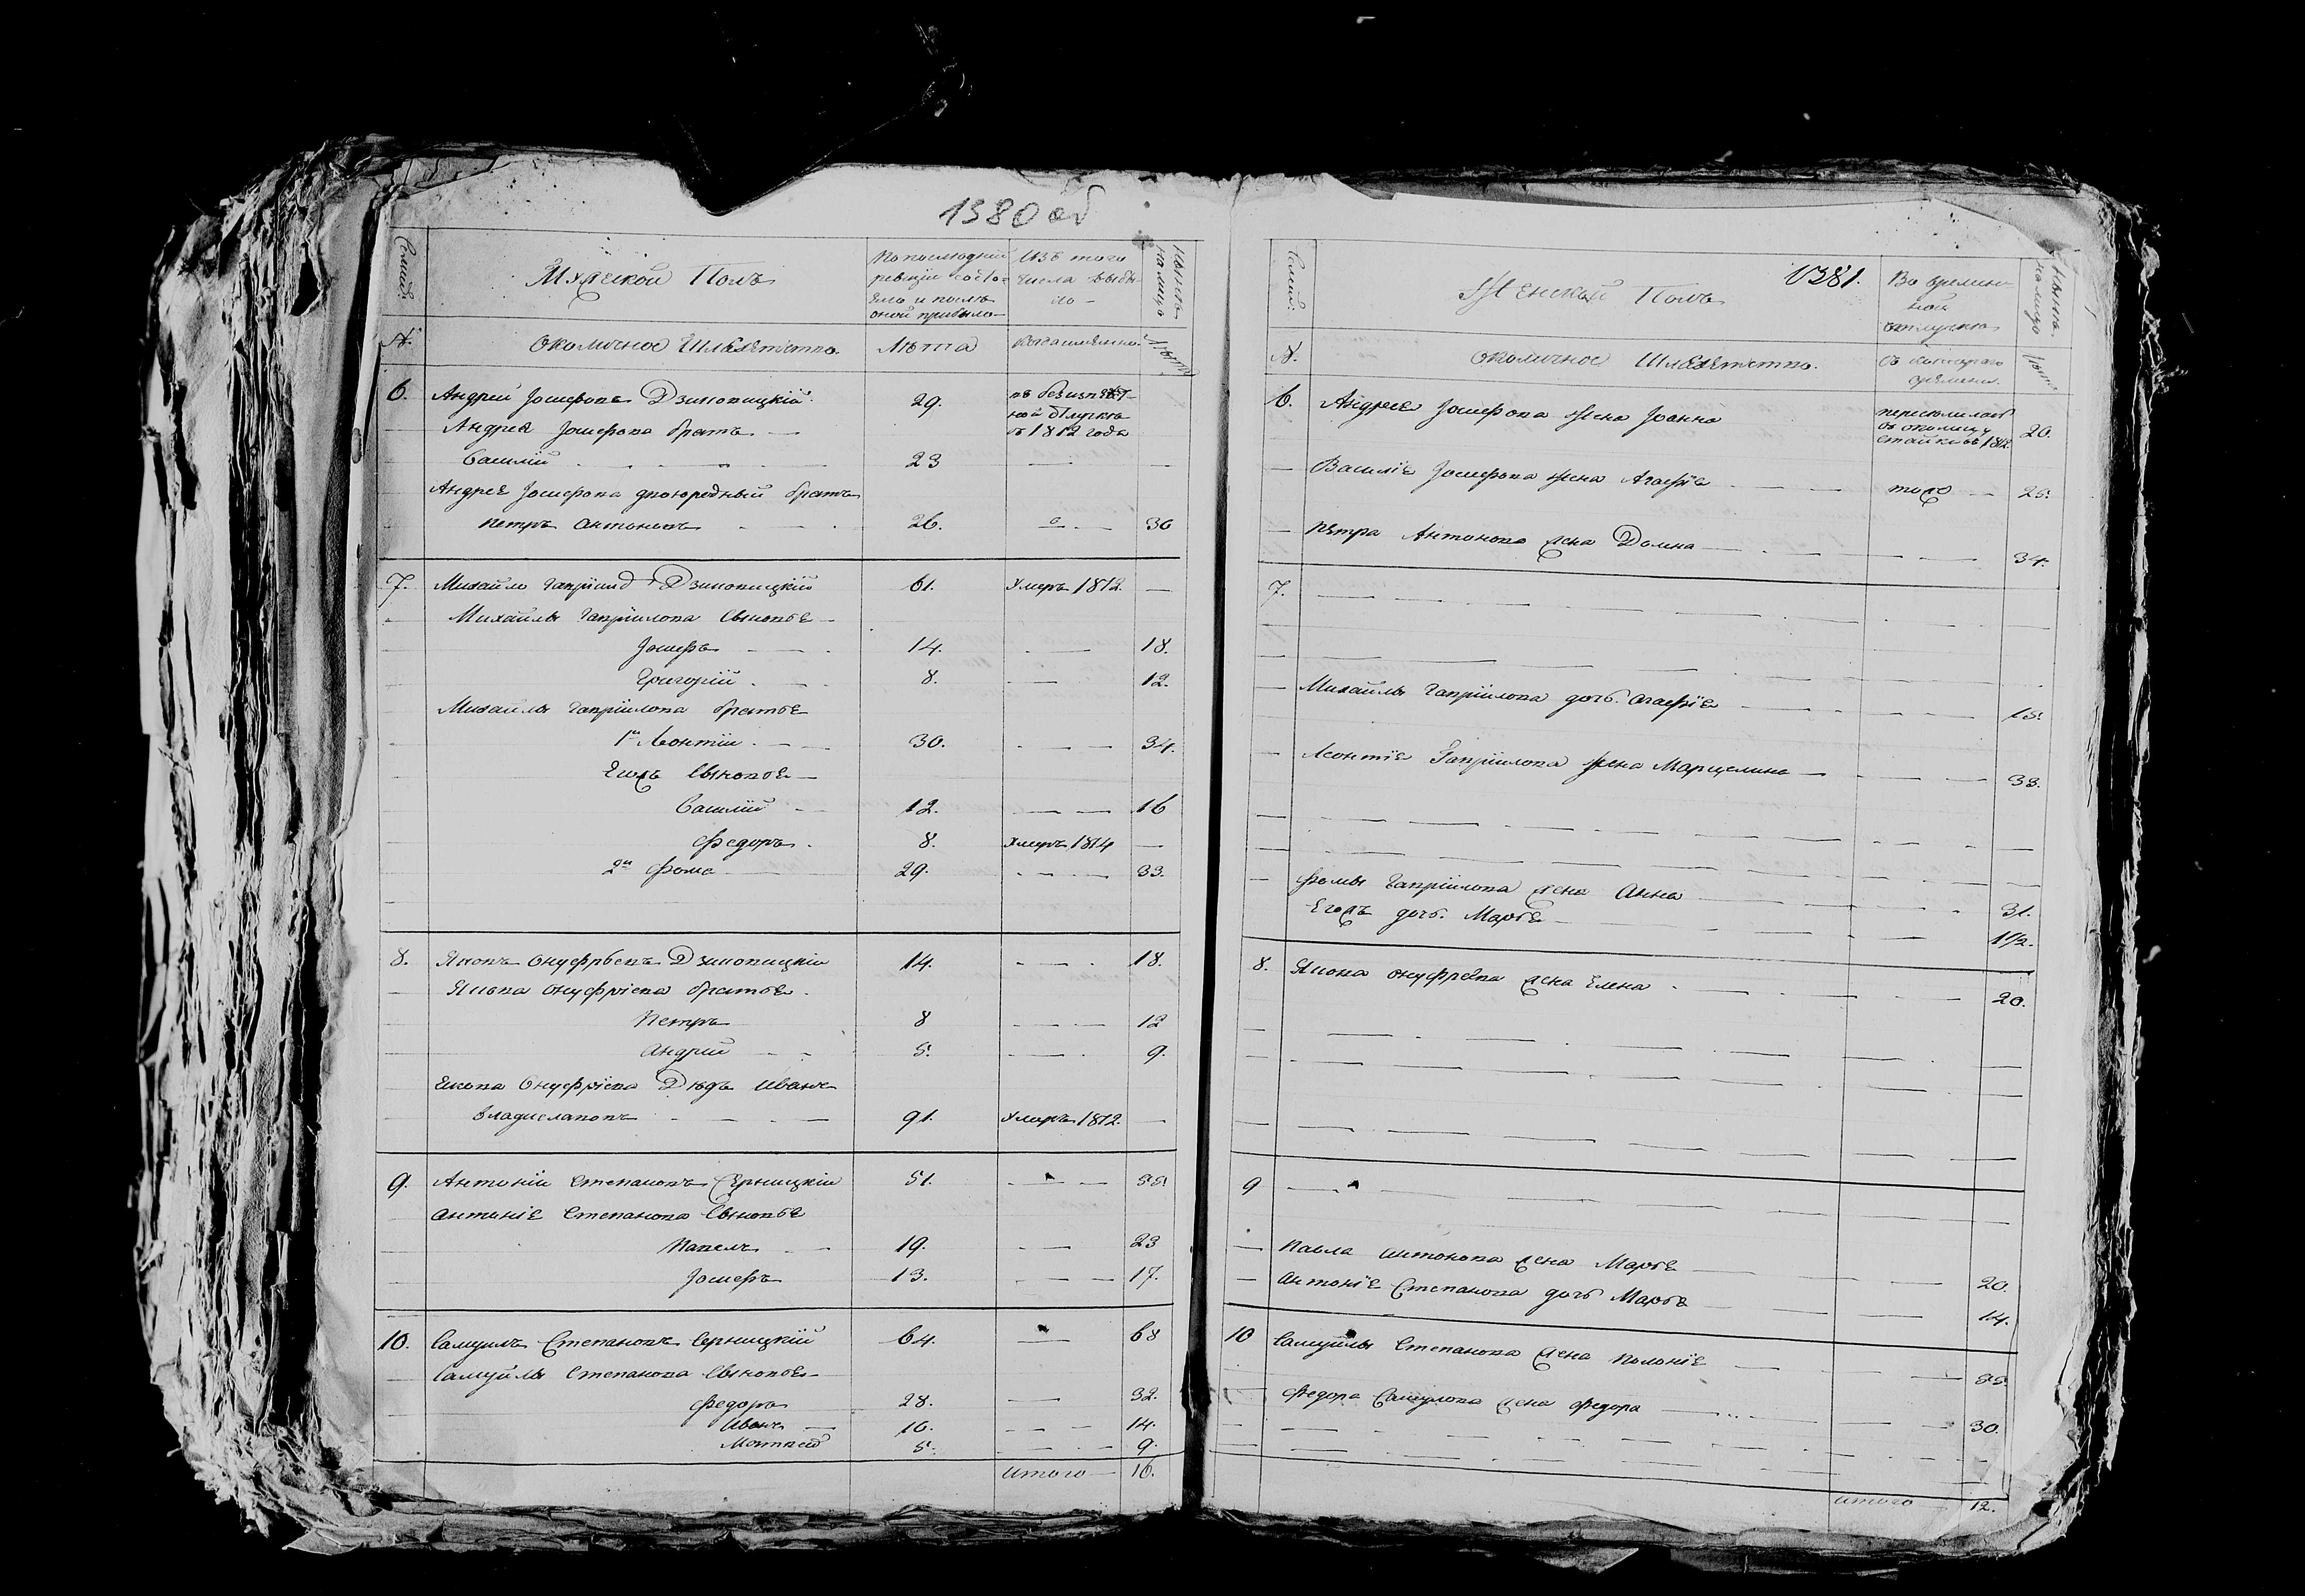 1380 об
Семьи
Мужеской Полъ
По последней
ревизіи состо-
яло и после
оной прибыло
Изъ того
числа выбы-
ло
Ныне
на лицо
№
околичное Шляхетство
Лета
когда именно
Лета
6. Андрей Іосифовъ Дзиковицкій 29. въ безизвест-
ной отлучке
съ 1812 года
Андрея Іосифова братъ
Василій 23
Андрея Іосифова двоюродный братъ
Петръ Антоновъ 26. 30
7. Михайло Гавріиловъ Дзиковицкій 61. Умеръ 1812.
Михайлы Гавріилова сыновья
Іосифъ 14. 18.
Григорій 8. 12.
Михайлы Гавріилова братья
1й Леонтій 30. 34.
Его сыновья
Василій 12. 16
Федоръ 8. Умеръ 1814
2й Фома 29. 33.
8. Яковъ Онуфріевъ Дзиковицкій 14. 18.
Якова Онуфріева братья
Петръ 8 12
Андрей 5. 9.
Якова Онуфріева Дядя Иванъ
Владиславовъ 91. Умеръ 1812.
9. Антоній Степановъ Серницкій 51. 55.
Антонія Степанова сыновья
Павелъ 19. 23
Іосифъ 13. 17.
10. Самуилъ Степановъ Серницкій 64. 68
Самуйлы Степанова сыновья
Федоръ 28. 32.
Иванъ 10. 14.
Матвей 5. 9.
итого 16.
1381.
Семьи
Женскій Полъ
Во времен-
ной
отлучке
Ныне
на лицо
№
околичное Шляхетство.
съ котораго
времени.
Лета
6. Андрея Іосифова жена Іоанна переселилась
въ околицу
Стайки въ 1812 20.
Василія Іосифова жена Агафія тожъ 25.
Петра Антонова жена Домна 34.
7.
Михайлы Гавріилова дочь Агафія 15.
Леонтія Гавріилова жена Марцелина 33.
Фомы Гавріилова жена Анна 31.
Егожъ дочь Марья 1 1/2.
8. Якова Онуфріева жена Елена 20.
9
Павла Антонова жена Марья 20.
Антонія Степанова дочь Марья 14.
10 Самуйлы Степанова жена Полонія 55.
Федора Самуилова жена Федора 30.
итого 12.